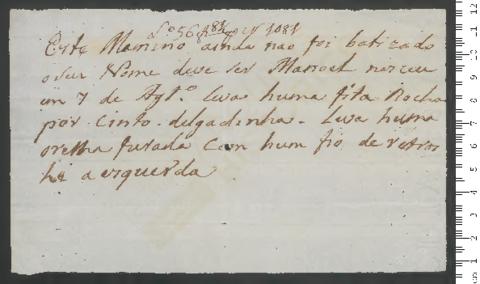 Este Menino ainda não foi batizado
o seu Nome deve ser Manoel nasceu
em 7 de Agt.º Leva huma fita Rocha
por cinto delgadinha. Leva huma
orelha furada com hum fio de retros
he a esquerda